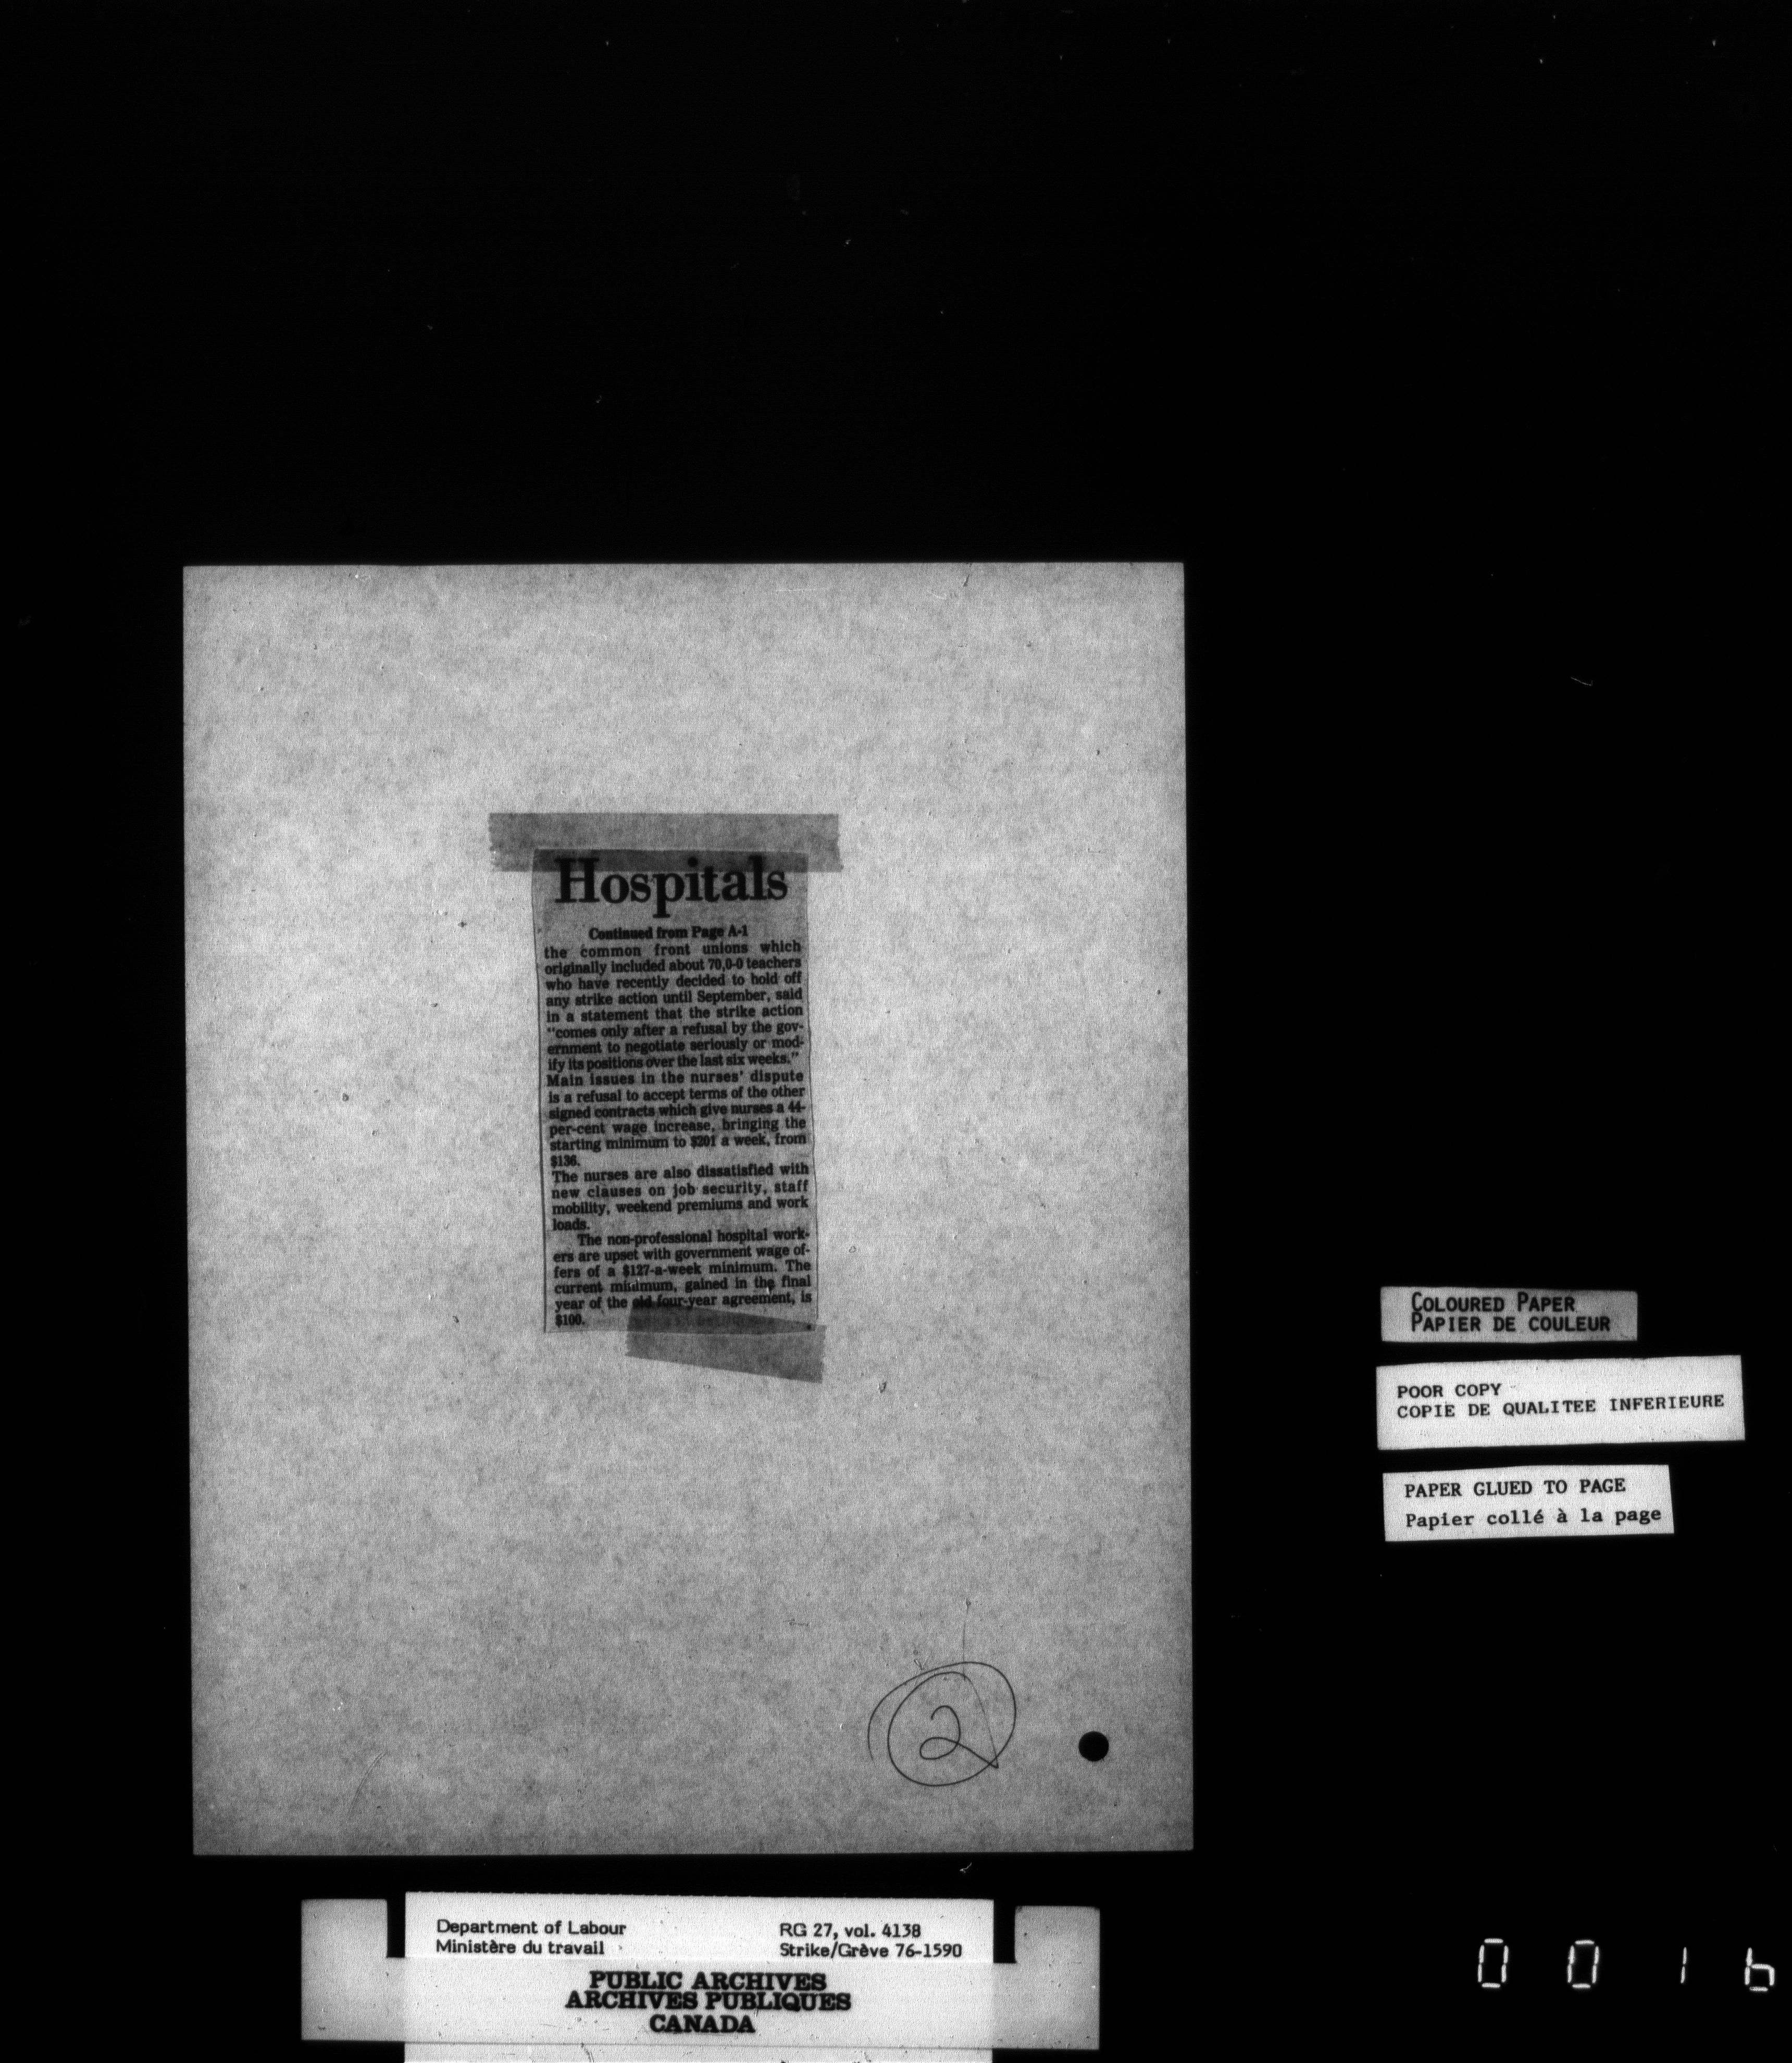 Hospitals
Continued from Page A-1
the common front unions which
originally included about 70,0-0 teachers
who have recently decided to hold off
any strike action until September, said
in a statement that the strike action
"comes only after a refusal by the gov-
ernment to negotiate seriously or mod-
ify its positions over the last six weeks."
Main issues in the nurses' dispute
is a refusal to accept terms of the other
signed contracts which give nurses a 44-
per-cent wage increase, bringing the
starting minimum to $201 a week, from
$136.
The nurses are also dissatisfied with
new clauses on job security, staff
mobility, weekend premiums and work
loads.
The non-professional hospital work-
ers are upset with government wage of-
fers of a $127-a-week minimum. The
current minimum, gained in the final
year of the old four-year agreement, is
$100.
2
COLOURED PAPER
PAPIER DE COULEUR
POOR COPY
COPIE DE QUALITEE INFERIEURE
PAPER GLUED TO PAGE
Papier collé à la page
Department of Labour
Ministère du travail
RG 27, vol. 4138
Strike/Grève 76-1590
PUBLIC ARCHIVES
ARCHIVES PUBLIQUES
CANADA
0016